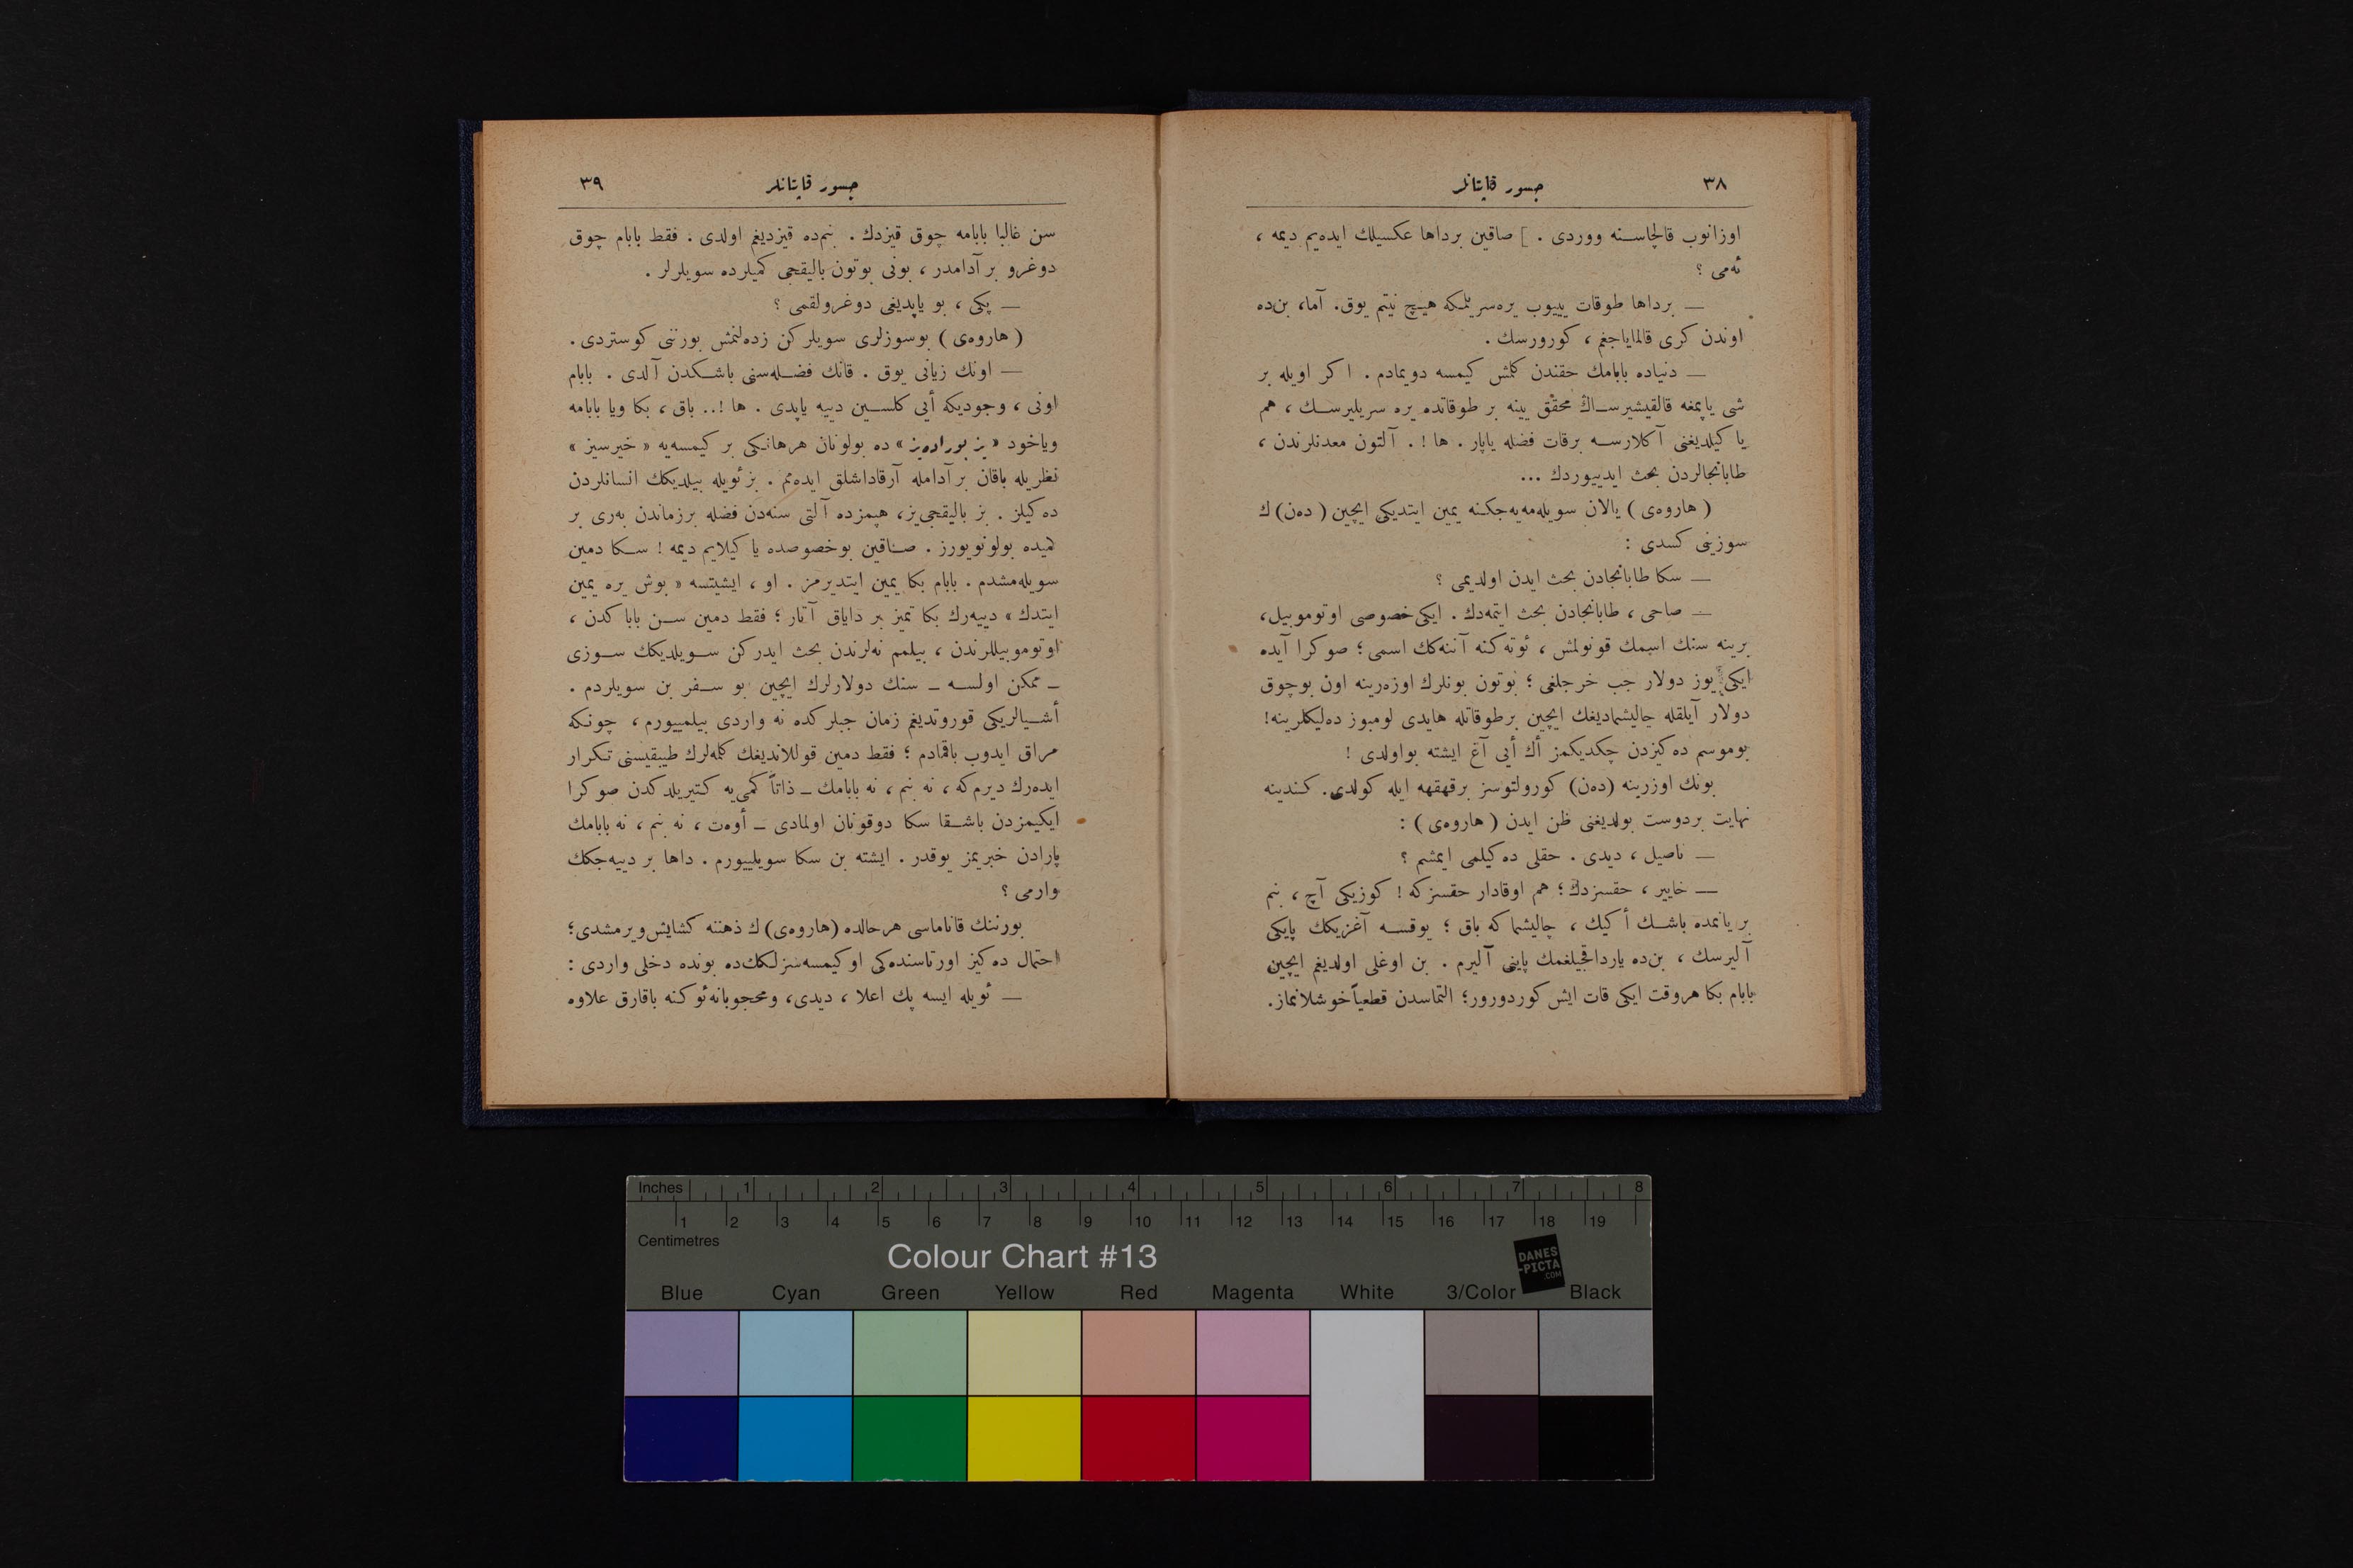 ٣٨
جسور قاپتانلر
اوزانوب قالچاسنه ووردى . ] صاقين برداها عكسيلك ايده‌يم ديمه ،
ئه‌مى ؟
— برداها طوقات ييوب يره‌سريلمكه هيچ نيتم يوق. آما، بن‌ده
اوندن كرى قالماياجغم ، كورورسك .
— دنياده بابامك حقندن كلمش كيمسه دويمادم . اكر اويله بر
شى ياپمغه قالقيشيرساڭ محقق يينه بر طوقاتده يره سريليرسك ، هم
يا كيلديغنى آكلارسه برقات فضله ياپار . ها !. آلتون معدنلرندن ،
طابانجالردن بحث ايدييوردك ...
( هاروه‌ى ) يالان سويله‌مه‌يه‌جكنه يمين ايتديكى ايچين ( ده‌ن) ك
سوزينى كسدى :
— سكا طابانجادن بحث ايدن اولديمى ؟
— صاحى ، طابانجادن بحث ايتمه‌دك . ايكى خصوصى اوتوموبيل،
برينه سنك اسمك قونولمش ، ئوته‌كنه آننه‌كك اسمى ؛ صوكرا آيده
ايكى يوز دولار جب خرجلغى ؛ بوتون بونلرك اوزه‌رينه اون بوچوق
دولار آيلقله چاليشماديغك ايچين برطوقاتله هايدى لومبوز ده‌ليكلرينه!
بوموسم ده‌كيزدن چكديكمز أك أيى آغ ايشته بواولدى !
بونك اوزرينه (ده‌ن) كورولتوسز برقهقهه ايله كولدى. كندينه
نهايت بردوست بولديغنى ظن ايدن ( هاروه‌ى ) :
— ناصيل ، ديدى . حقلى ده‌كيلمى ايمشم ؟
— خايير ، حقسزدڭ ؛ هم اوقادار حقسزكه ! كوزيكى آچ ، بنم
بر يانمده باشك أكيك ، چاليشماكه باق ؛ يوقسه آغزيكك پايكى
آليرسك ، بن‌ده يارداقجيلغمك پاينى آليرم . بن اوغلى اولديغم ايچين
بابام بكا هروقت ايكى قات ايش كوردورور؛ التماسدن قطعياً خوشلانماز.
٣٩
جسور قاپتانلر
سن غالبا بابامه چوق قيزدك . بنم‌ده قيزديغم اولدى . فقط بابام چوق
دوغرو بر آدامدر ، بونى بوتون باليقجى كميلرده سويلرلر .
— پكى ، بو ياپديغى دوغرولقمى ؟
( هاروه‌ى ) بوسوزلرى سويلركن زده‌لنمش بورننى كوستردى .
— اونك زيانى يوق . قانك فضله‌سنى باشكدن آلدى . بابام
اونى ، وجوديكه أيى كلسين دييه ياپدى . ها !.. باق ، بكا ويا بابامه
وياخود « بز بوراده‌يز » ده بولونان هرهانكى بر كيمسه‌يه « خيرسيز »
نظريله باقان بر آدامله آرقاداشلق ايده‌مم . بز ئويله بيلديكك انسانلردن
ده‌كيلز . بز باليقجى‌يز، هپمزده آلتى سنه‌دن فضله برزماندن به‌رى بر
كميده بولونويورز . صاقين بوخصوصده يا كيلايم ديمه ! سكا دمين
سويله‌مشدم . بابام بكا يمين ايتديرمز . او ، ايشيتسه « بوش يره يمين
ايتدك » دييه‌رك بكا تميز بر داياق آتار ؛ فقط دمين سن باباكدن ،
اوتوموبيللرندن ، بيلمم نه‌لرندن بحث ايدركن سويلديكك سوزى
ـ ممكن اولسه ـ سنك دولارلرك ايچين بو سفر بن سويلردم .
أشيالريكى قوروتديغم زمان جبلركده نه واردى بيلمييورم ، چونكه
مراق ايدوب باقمادم ؛ فقط دمين قوللانديغك كلمه‌لرك طيبقيسنى تكرار
ايده‌رك ديرم‌كه ، نه بنم ، نه بابامك ـ ذاتاً كمى‌يه كتيريلدكدن صوكرا
ايكيمزدن باشقا سكا دوقونان اولمادى ـ أوه‌ت ، نه بنم ، نه بابامك
پارادن خبريمز يوقدر . ايشته بن سكا سويلييورم . داها بر دييه‌جكك
وارمى ؟
بورننك قاناماسى هرحالده (هاروه‌ى) ك ذهننه كشايش ويرمشدى ؛
احتمال ده‌كيز اورتاسنده‌كى او كيمسه‌سزلكك‌ده بونده دخلى واردى :
— ئويله ايسه پك اعلا ، ديدى، ومحجوبانه ئوكنه باقارق علاوه
Inches 1 2 3 4 5 6 7 8
1 2 3 4 5 6 7 8 9 10 11 12 13 14 15 16 17 18 19
Centimetres
Colour Chart #13
DANES
-PICTA
.COM
Blue Cyan Green Yellow Red Magenta White 3/Color Black